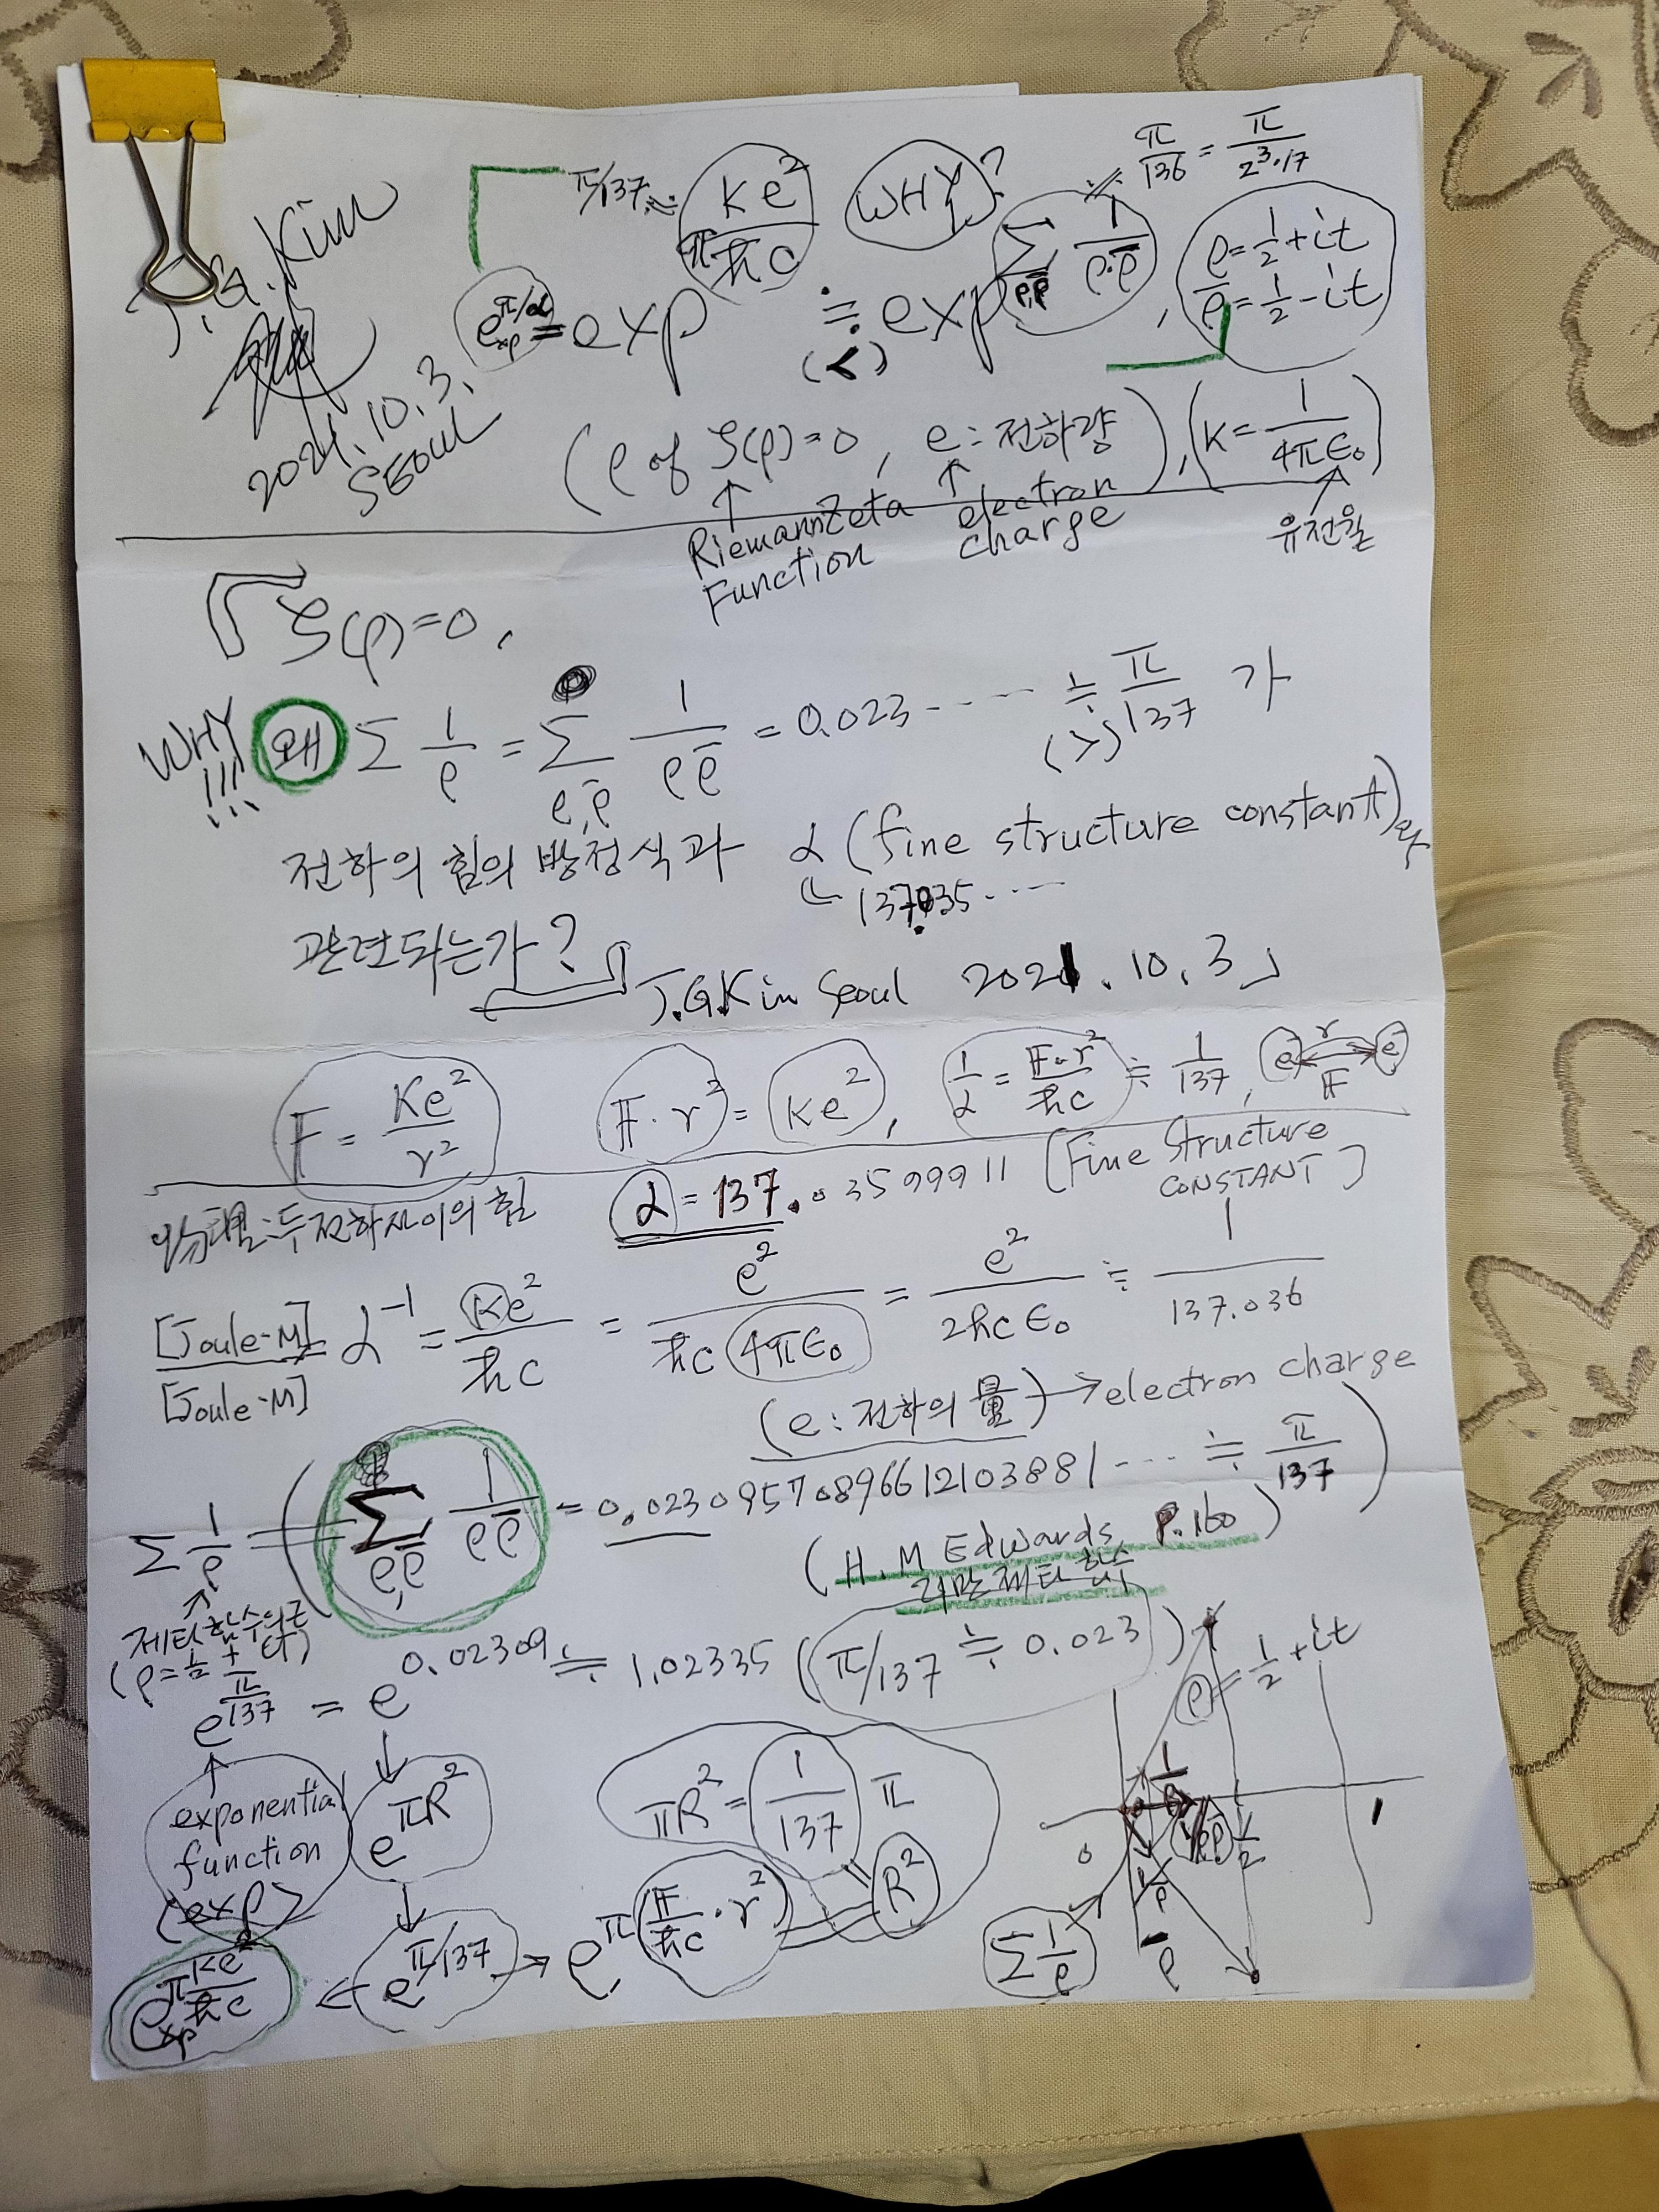 J.G. Kim
2021. 10. 3.
SEOUL
π/137 ≒ Ke²/πħc WHY? ≒ π/136 = π/2³·17
e^π/α xp = exp ≒ (<) exp Σ ρ,ρ̄ 1/ρ·ρ̄ , ρ = 1/2 + it
ρ̄ = 1/2 − it
(ρ of ζ(ρ)=0, e: 전하량), (K = 1/4πε₀)
↑ ↑ ↑
Riemann Zeta Function electron charge 유전율
「ζ(ρ)=0,
WHY!!! 왜 Σ 1/ρ = Σ ρ,ρ̄ 1/ρρ̄ = 0.023 ---- ≒ (>) π/137 가
전하의 힘의 방정식과 α (fine structure constant)와
↳ 137.035 ----
관련되는가?」
J.G.K in Seoul 2021. 10. 3」
F = Ke²/r² F·r² = Ke², 1/α = F·r²/ħc ≒ 1/137, e r F e
물리: 두 전하사이의 힘 α = 137.03599911 [Fine Structure CONSTANT]
[Joule-M]/[Joule-M] α⁻¹ = Ke²/ħc = e²/ħc 4πε₀ = e²/2hcε₀ ≒ 1/137.036
(e: 전하의 量) → electron charge
Σ 1/ρ = (Σ ρ,ρ̄ 1/ρρ̄ = 0.02309570896612103881 ---- ≒ π/137)
(H.M Edwards P.160)
리만 제타 함수
제타함수의 근
(ρ = 1/2 + it)
e^π/137 = e^0.02309 ≒ 1.02335 (π/137 ≒ 0.023)
ρ = 1/2 + it
↑ ↓
exponential function (exp) e^πR² πR² = 1/137 π
R²
1/ρ
0 1/ρρ̄ 1/2 1
1/ρ̄
ρ̄
Σ 1/ρ
e xp^π Ke²/ħc ← e^π/137 → e^π(F/ħc · r²)